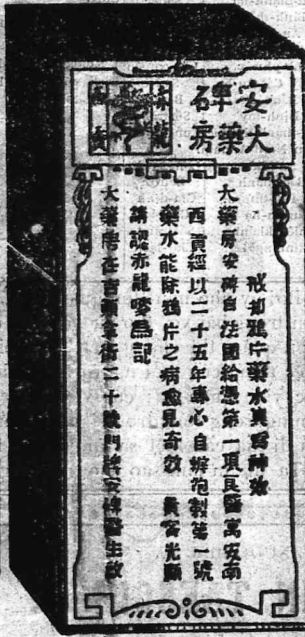 安大
畢藥
石房
赤龍
西貢
戒却鴉片藥水真為神效
大藥房安碑自法國給憑第一項良醫寓安南
西貢經以二十五年專心自辦炮製第一號
藥水能除鴉片之病愈見奇效 貴客光顧
請認赤龍嘜為記
大藥房在吉額拿街二十號門牌安碑醫生啟